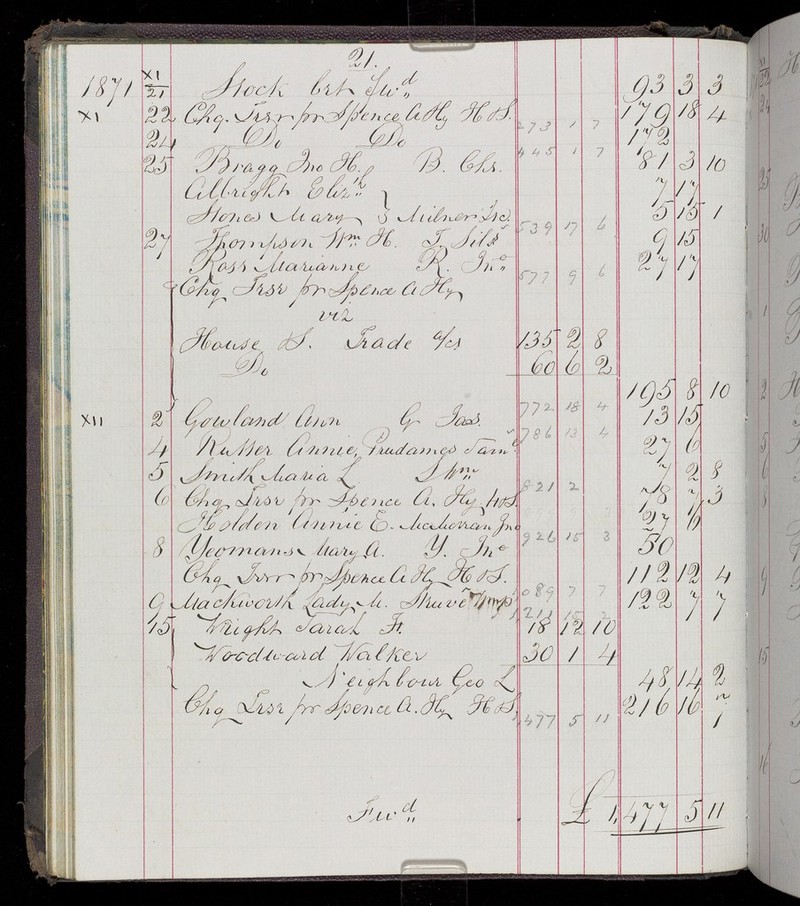 21.
1871 XI/21 Stock brt Fwd 93 3 3
XI 22 Chq. Trsr pr Spence A Hy H & S. 179 18 4
273 1 7
24 Do Do 172
445 1 7
25 Bragg Jno H. B. Chs. 81 3 10
Albright Elizth 7 17
Stones Mary } Milner Isc. 5 15 1
539 17 6
27 Thompson Wm H. T. Silvs 9 15
Ross Marianne R. Jno 27 17
577 9 6
Chq Trsr pr Spence A Hy
viz
House S. Trade a/cs 135 2 8
Do 60 6 2
195 8 10
772 18 4
XII 2 Gowland Ann G Jas. 13 15
786 13 4
4 Rutter Annie, Prudames 27 6
5 Smith Maria L S Wm 7 2 8
821 2
6 Chq Trsr pr Spence A. Hy H&S. 78 7 3
Holden Annie E. McMorran Jno 27 6
926 15 3
8 Yeomans Mary A. Y. Jno 50
Chq Trsr pr Spence A Hy H & S. 112 12 4
1,089 7 7
9 Mackworth Lady M. Struvé 122 7 7
1,211 15 2
15 Wright Sarah F. 18 12 10
Woodward Walker 30 1 4
Neighbour Geo L 48 14 2
Chq Trsr pr Spence A. Hy H & S. 216 16 7
1,477 5 11
Fwd £ 1,477 5 11